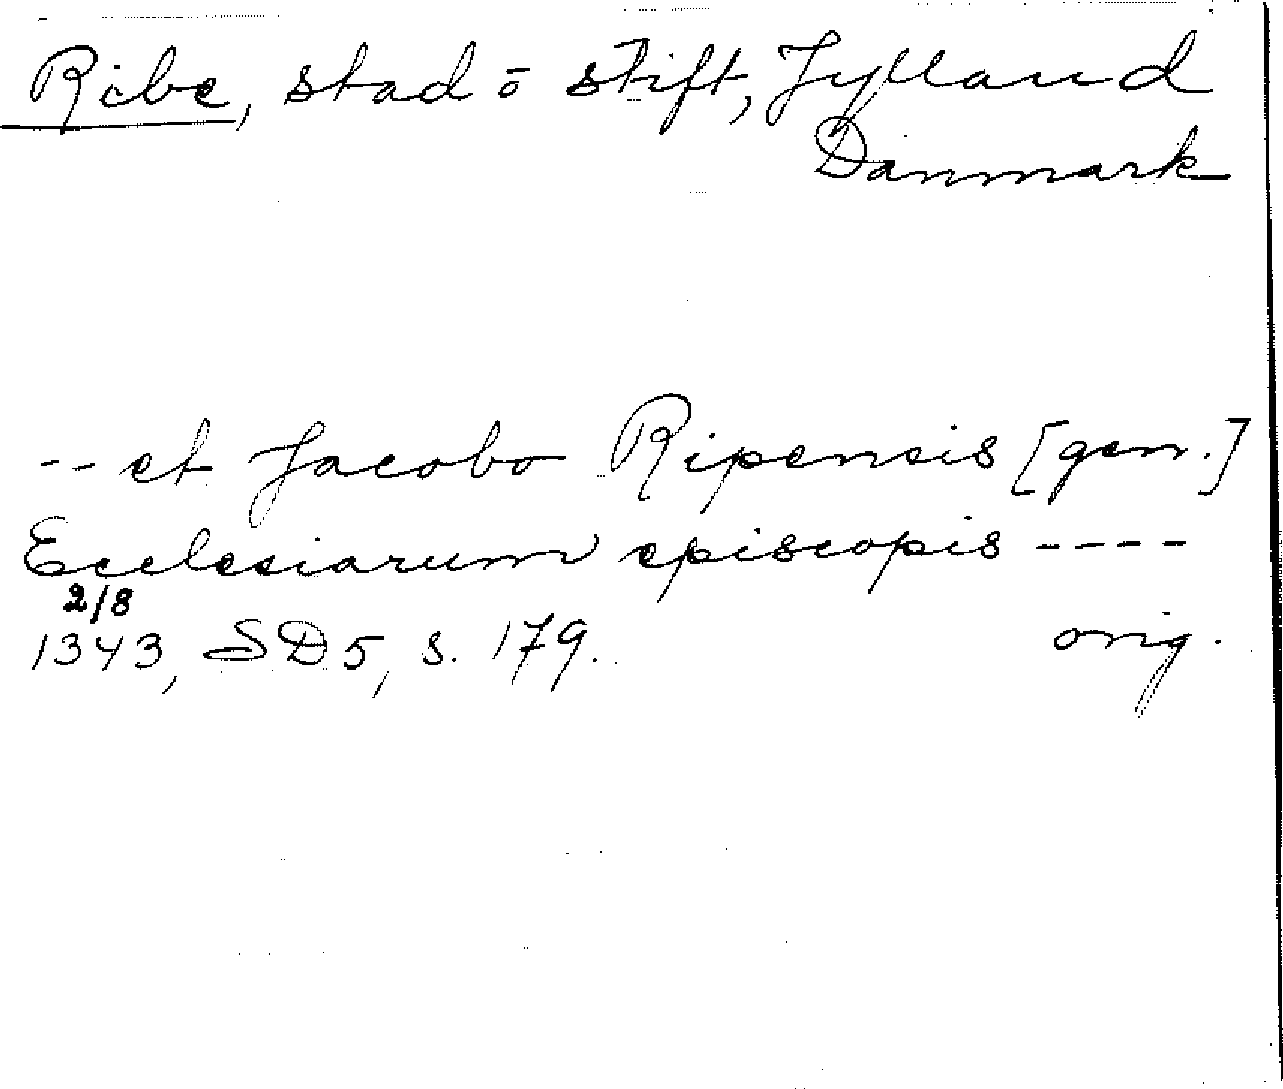 Ribe, stad ō stift, Jylland
Danmark
-- et Jacobo Ripensis [gen.]
Ecclesiarum episcopis ----
2/8
1343, SD5, s. 179. orig.